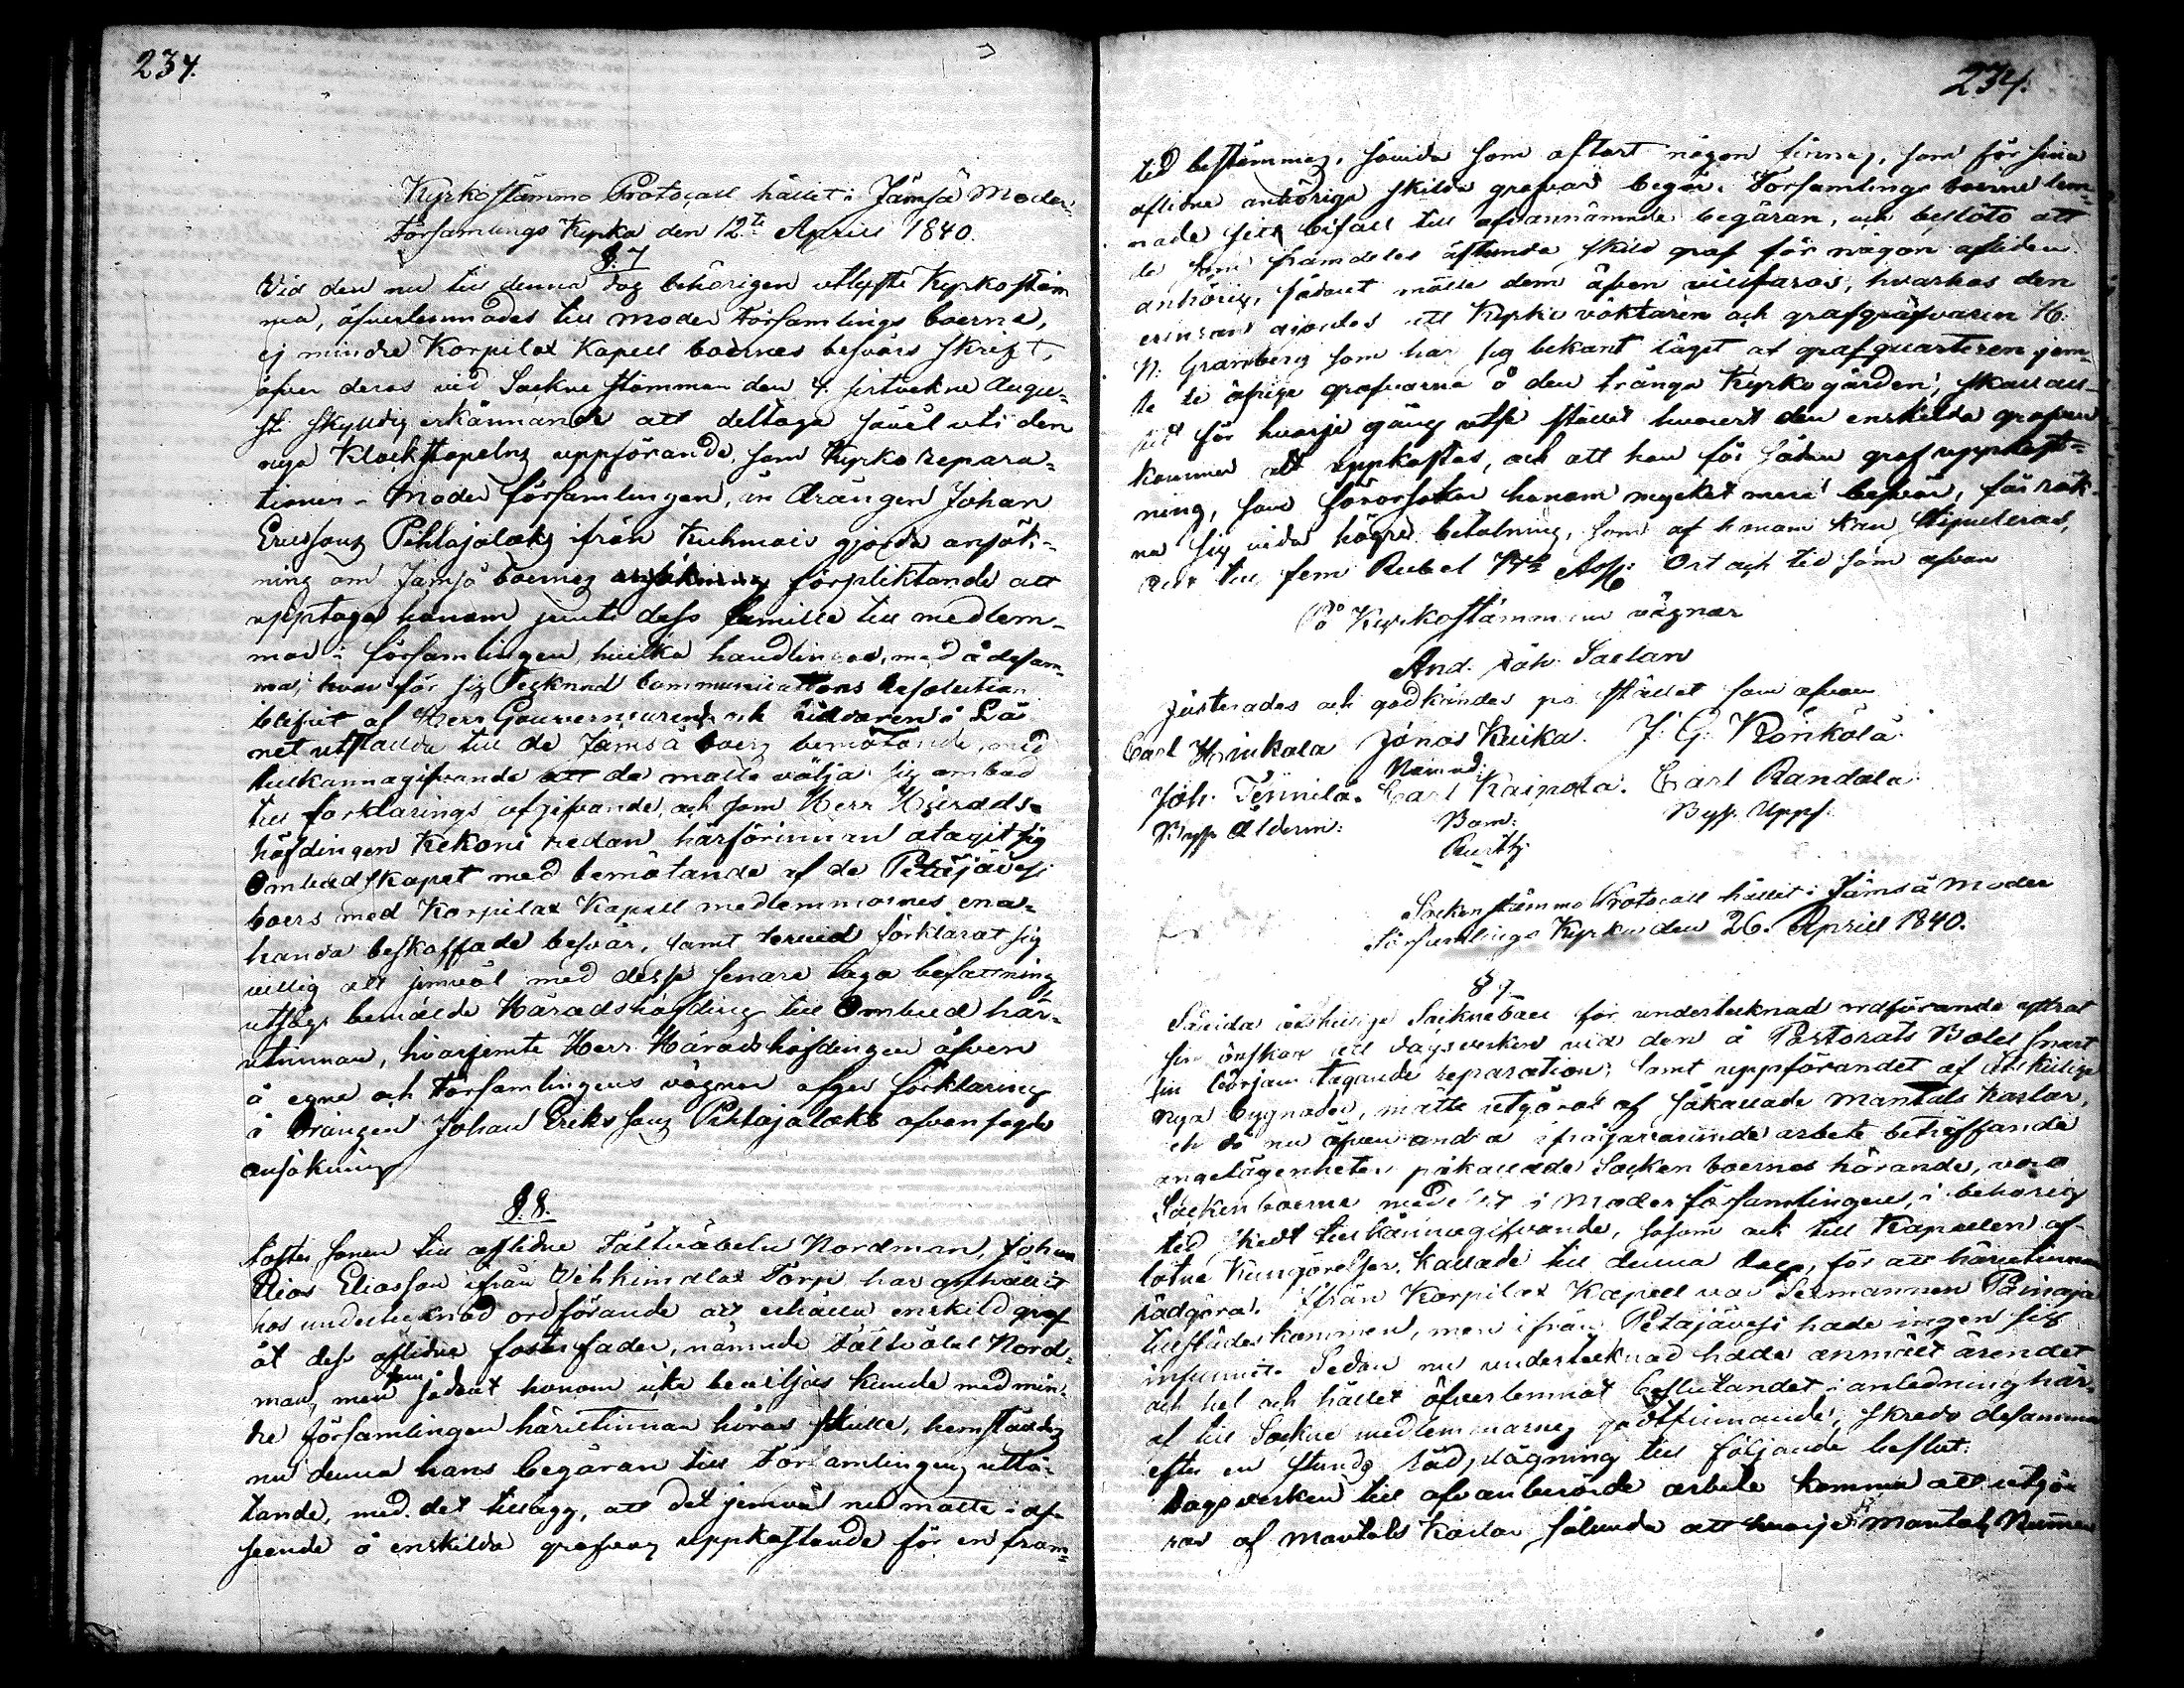 234.
Kyrkostämmo Protocoll hållet i Jämsä Moder
Församlings Kyrka den 12te April 1840.
§. 7
Vid den nu till denna dag behörigen utlyste Kyrkostäm
ma, öfverlemnades till Moder Församlings boerne,
ej mindre Korpilax Kapell boernes besvärs skrift,
öfver deras vid Sockne stämman den 4 sistvekne Augu-
sti skyldig erkännande att deltaga såväl uti den
nya Klockstapelns uppförande, som Kyrko repara-
tionen i Moder församlingen, än Drängen Johan
Ericssons Pihlajalaks ifrån Kuhmois gjorde ansök-
ning om Jämsä boernes förpliktande att
upptaga honom jemte dess familie till medlem-
mar i församlingen, hvilka handlingar, med å desam-
ma, hvar för sig tecknad Communications Resolution
blifvit af Herr Gouverneuren och Riddaren i Lä
net utstälda till de Jämsä boers bemötande, med
tillkännagifvande att de måtte välja sig ombud
till förklarings afgifvande, och som Herr Härads-
höfdingen Kekoni redan härförinnan åtagit sig
Ombudskapet med bemötande af de Petäjävesi
boers med Korpilax Kapell medlemmarnes ena-
handa beskaffade besvär, samt förklarat sig
villig att jemväl med dessa senare taga befattning
utsågs bemälde Häradshöfding till Ombud här-
utinnan, hvarjemte Herr Häradshöfdingen äfven
å egne och Församlingens vägnar afger förklaring
å Drängen Johan Ericssons Pihlajalaks ofvansagde
ansökning
§. 8.
Foster sonen till aflidne Fältväbeln Nordman, Johan
Elias Eliasson ifrån Vihkimalax Torp har anhållit
hos undertecknad ordförande att erhålla enskild graf
åt dess aflidne fosterfader, nämnde Fältväbel Nord-
man, men som sådant honom icke beviljas kunde med min-
dre församlingen härutinnan höras skulle, hemstäldes
nu denna hans begäran till Församlingens utlå-
tande, med det tillägg, att det jemväl nu måtte i af-
seende å enskilda grafvars uppkastande för en fram-
234.
tid bestämmas, såvida som oftast någon finnes, som för sina
aflidne anhöriga skilda grafvar begär. Församlings boerne lem-
nade sitt bifall till ofvannämnde begäran, och beslöto att
de som framdeles åstunda skild graf för någon afliden
anhörig, sådant måtte dem äfven villfaras, hvarhos den
erinran gjordes att Kyrko väktaren och grafgräfvaren H.
N. Granberg som har sig bekant läget af grafquarteren jem-
te de öfrige grafvarne å den trånga Kyrkogården, skall all-
tid för hvarje gång utse stället hvarest den enskilda grafven
kommer att uppkastas, och att han för sådan graf uppkast-
ning, som förorsakar honom mycket mera besvär, får räk-
na sig vida högre betalning, som af honom kan stipuleras,
ända till fem Rubel Bco Ass. Ort och tid som ofvan
På Kyrkostämmans vägnar
And. Joh. Saxlan
Justerades och godkändes på stället som ofvan
Carl Hinkala Jonas Kuika. J. G. Rönkölä.
Nämnd:
Joh. Tennilä. Carl Kaipola. Carl Randala.
Byss Ålderm: Bom: Bys. Upps.
Rusth
Sockenstämmo Protocoll hållet i Jämsä Moder
Församlings Kyrka den 26. April 1840.
§ 9
Såvida åtskillige Socknebor för undertecknad ordförande yttrat
sin önskan att dagsverken vid den å Pastorats Bolet snart
sin början tagande reparation, samt uppförandet af åtskillige
nya bygnader, måtte utgöras af såkallade Mantals Karlar,
och då nu äfven andra ifrågavarande arbete beträffande
angelägenheter påkallade Socken boernes hörande, voro
Socken boerne medelst i Moder församlingen i behörig
tid skedt tillkännagifvande, såsom och till Kapellen af-
låtne Kungörelser, kallade till denna dag, för att härutinnan
rådgöra. Ifrån Korpilax Kapell var Sexmannen Päinaja
tillstädes kommen, men ifrån Petäjävesi hade ingen sig
infunnit. Sedan nu undertecknad hade anmält ärendet
och hel och hållet öfverlemnat beslutandet i anledning här-
af till Sockne medlemmarnes godtfinnande, skredo desamma
efter en stunds rådplägning till följande beslut:
Dagsverken till ofvanberörde arbete komma att utgö-
ras af Mantals Karlar sålunda att hvarje Mantals Nummer